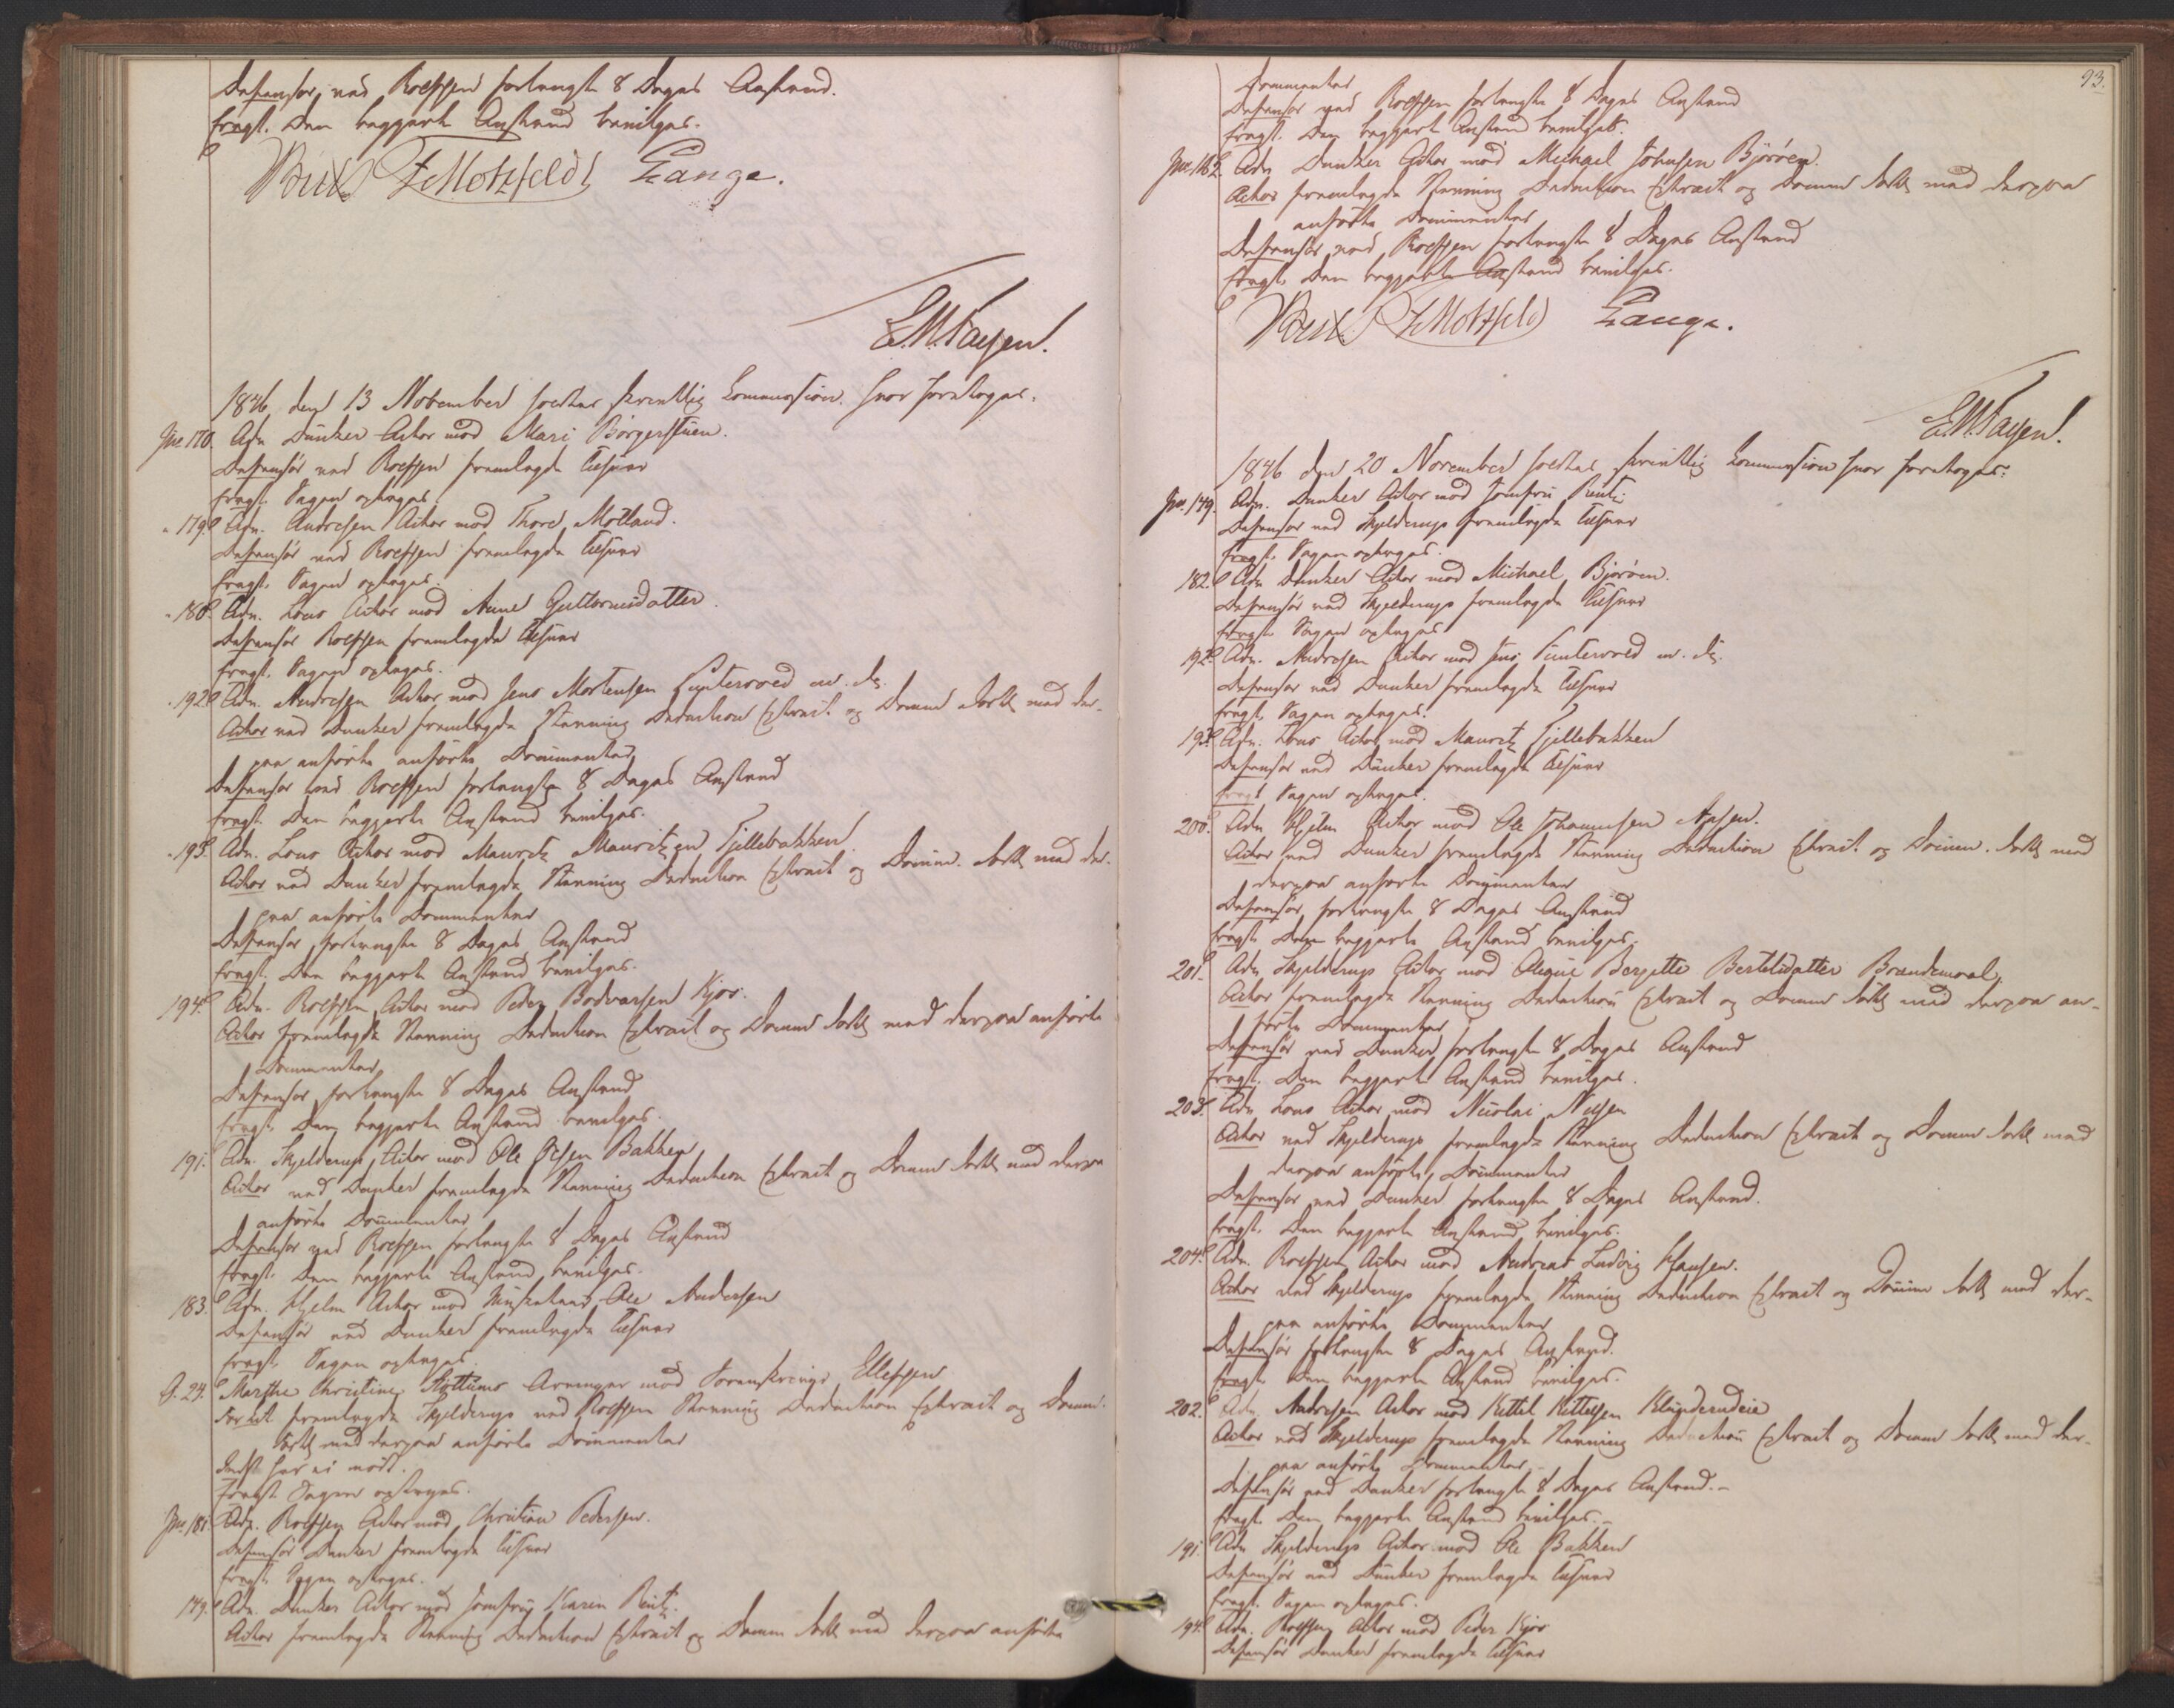 Defensor ved Rolfsen forlangte 8 Dages Anstand.
fragt. Den begjærte Anstand bevilges.
Motzfeldt Lange.
E.M. Fayen.
1846 den 13 November holdtes skriftlig Commission hvor foretoges:
No. 170. Adv. Dunker Actor mod Mari Börgerstuen.
Defensor ved Rolfsen fremlagde Tilsvar
fragt. Sagen optages.
" 179. Adv. Andresen Actor mod Thore Motland.
Defensor ved Rolfsen fremlagde Tilsvar
fragt. Sagen optages.
" 180. Adv. Lous Actor mod Anne Guttormsdatter.
Defensor Rolfsen fremlagde Tilsvar
fragt. Sagen optages.
" 192. Adv. Andresen Actor mod Jens Mortensen m. fl.
Actor ved Dunker fremlagde Stevning Deduction Extract og Docum. Forts. med der-
paa anförte anförte Documenter
Defensor ved Rolfsen forlangte 8 Dages Anstand
fragt. Den begjærte Anstand bevilges.
" 193. Adv. Lous Actor mod Mauritz Mauritzen Fjellebakken.
Actor ved Dunker fremlagde Stevning Deduction Extract og Docum. Forts. med der-
paa anförte Documenter
Defensor forlangte 8 Dages Anstand
fragt. Den begjærte Anstand bevilges.
194. Adv. Rolfsen Actor mod Peder Bodvarsen Kjos.
Actor fremlagde Stevning Deduction Extract og Docum. Forts. med derpaa anförte
Documenter
Defensor forlangte 8 Dages Anstand
fragt. Den begjærte Anstand bevilges.
191. Adv. Skjelderup Actor mod Ole Olsen Bakken
Actor ved Dunker fremlagde Stevning Deduction Extract og Docum. Forts. med derpaa
anförte Documenter
Defensor ved Rolfsen forlangte 8 Dages Anstand
fragt. Den begjærte Anstand bevilges.
183. Adv. Hjelm Actor mod Musketeer Ole Andersen
Defensor ved Dunker fremlagde Tilsvar
fragt. Sagen optages.
24. Marthe Christine Arvinger mod Ellefsen
fremlagde Skjelderup ved Rolfsen Stevning Deduction Extract og Docum.
Forts. med derpaa anförte Documenter
har ei mödt.
fragt. Sagen optages.
No. 181. Adv. Rolfsen Actor mod Christian Pedersen.
Defensor Dunker fremlagde Tilsvar
fragt. Sagen optages.
149. Adv. Dunker Actor mod Jomfru Karen Rentz.
Actor fremlagde Stevning Deduction Extract og Docum. Forts. med derpaa anförte
93.
Documenter
Defensor ved Rolfsen forlangte 8 Dages Anstand
fragt. Den begjærte Anstand bevilges.
No. 182. Adv. Dunker Actor mod Michael Johnsen Björöen.
Actor fremlagde Stevning Deduction Extract og Docum. Forts. med derpaa
anförte Documenter
Defensor ved Rolfsen forlangte 8 Dages Anstand
fragt. Den begjærte Anstand bevilges.
Motzfeldt Lange.
E.M. Fayen.
1846 den 20 November holdtes skriftlig Commission hvor foretoges:
No. 149. Adv. Dunker Actor mod Jomfru Rentz.
Defensor ved Skjelderup fremlagde Tilsvar
fragt. Sagen optages.
182. Adv. Dunker Actor mod Michael Björöen.
Defensor ved Skjelderup fremlagde Tilsvar
fragt. Sagen optages
192. Adv. Andresen Actor mod Jens m. fl.
Defensor ved Dunker fremlagde Tilsvar
fragt. Sagen optages.
193. Adv. Lous Actor mod Mauritz Fjellebakken
Defensor ved Dunker fremlagde Tilsvar
fragt. Sagen optages.
200. Adv. Hjelm Actor mod Ole Johannesen Aasen.
Actor ved Dunker fremlagde Stevning Deduction Extract og Docum. Forts. med
derpaa anförte Documenter
Defensor forlangte 8 Dages Anstand
fragt. Den begjærte Anstand bevilges.
201. Adv. Skjelderup Actor mod Bergitte Bertelsdatter Brandemoal.
Actor fremlagde Stevning Deduction Extract og Docum. Forts. med derpaa an-
förte Documenter
Defensor ved Dunker forlangte 8 Dages Anstand
fragt. Den begjærte Anstand bevilges.
203. Adv. Lous Actor mod Nicolai Nilsen
Actor ved Skjelderup fremlagde Stevning Deduction Extract og Docum. Forts. med
derpaa anförte Documenter
Defensor ved Dunker forlangte 8 Dages Anstand.
fragt. Den begjærte Anstand bevilges.
204. Adv. Rolfsen Actor mod Andreas Ludvig Hansen.
Actor ved Skjelderup fremlagde Stevning Deduction Extract og Docum. Forts. med der-
paa anförte Documenter
Defensor forlangte 8 Dages Anstand.
fragt. Den begjærte Anstand bevilges.
202. Adv. Andresen Actor mod Kittil Kittilsen
Actor ved Skjelderup fremlagde Stevning Deduction Extract og Docum. Forts. med der-
paa anförte Documenter.
Defensor ved Dunker forlangte 8 Dages Anstand.-
fragt. Den begjærte Anstand bevilges.-
191. Adv. Skjelderup Actor mod Ole Bakken
Defensor ved Dunker fremlagde Tilsvar
fragt. Sagen optages.
194. Adv. Rolfsen Actor mod Peder Kjos
Defensor Dunker fremlagde Tilsvar